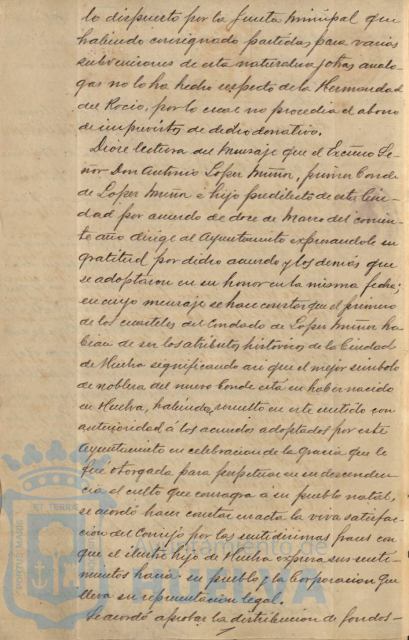 lo dispuesto por la Junta municipal que
habiendo consignado partidas para varias
subvenciones de esta naturaleza y otras analo-
gas no lo ha hecho respecto de la Hermandad
del Rocio, por lo cual no procedia el abono
de imprevistos de dicho donativo.
Diose lectura del Mensaje que el Excmo Se-
ñor Don Antonio Lopez Muñoz, primer Conde
de Lopez Muñoz e hijo predilecto de esta Ciu-
dad por acuerdo de doce de Marzo del corrien-
te año dirige al Ayuntamiento expresandole su
gratitud por dicho acuerdo y los demás que
se adoptaron en su honor en la misma fecha;
en cuyo mensaje se hace constar que el primero
de los cuarteles del Condado de Lopez Muñoz ha-
bian de ser los atributos historicos de la Ciudad
de Huelva significando asi que el mejor simbolo
de nobleza del nuevo Conde está en haber nacido
en Huelva, habiendo resuelto en este sentido con
anterioridad á los acuerdos adoptados por este
Ayuntamiento en celebracion de la Gracia que le
fue otorgada para perpetuar en su descenden-
cia el culto que consagra á su pueblo natal,
se acordó hacer constar en acta la viva satisfac-
cion del Concejo por las sentidisimas frases con
que el ilustre hijo de Huelva expresa sus senti-
mientos hacia su pueblo y la Corporacion que
lleva su representacion legal.
Se acordó aprobar la distribucion de fondos
PORTUS MARIS ET TERRE
Ayuntamiento de
HUELVA